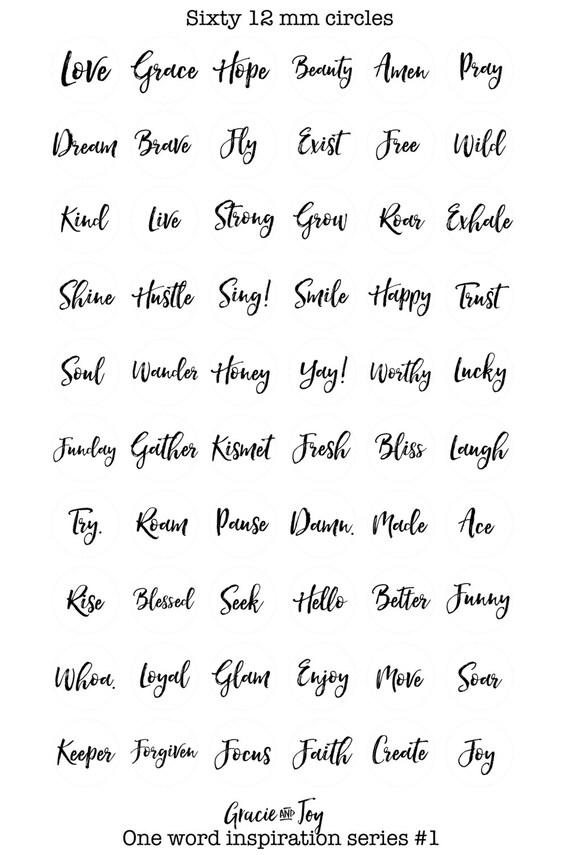 Sixty 12 mm circles
Love Grace Hope Beauty Amen Pray
Dream Brave Fly Exist Free Wild
Kind Live Strong Grow Roar Exhale
Shine Hustle Sing! Smile Happy Trust
Soul Wander Honey Yay! Worthy Lucky
Funday Gather Kismet Fresh Bliss Laugh
Try. Roam Pause Damn. Made Ace
Rise Blessed Seek Hello Better Funny
Whoa. Loyal Glam Enjoy Move Soar
Keeper Forgiven Focus Faith Create Joy
Gracie AND Joy
One word inspiration series #1